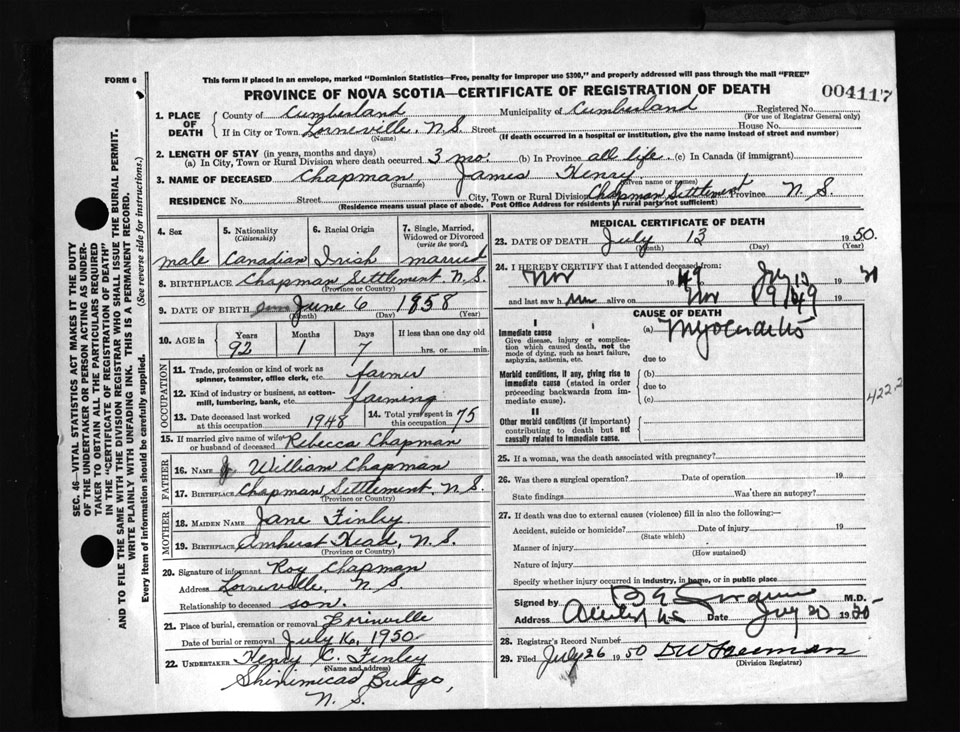 FORM 6
This form if placed in an envelope, marked "Dominion Statistics—Free, penalty for improper use $300," and properly addressed will pass through the mail "FREE"
PROVINCE OF NOVA SCOTIA—CERTIFICATE OF REGISTRATION OF DEATH
004117
1. PLACE OF DEATH
County of Cumberland Municipality of Cumberland Registered No.
(For use of Registrar General only)
If in City or Town Lorneville, N.S. Street House No.
(Name) (If death occurred in a hospital or institution, give the name instead of street and number)
2. LENGTH OF STAY (in years, months and days)
(a) In City, Town or Rural Division where death occurred 3 mo. (b) In Province all life. (c) In Canada (if immigrant)
3. NAME OF DECEASED Chapman James Henry
(Surname) (Given name or names)
RESIDENCE No. Street City, Town or Rural Division Chapman Settlement Province N. S.
(Residence means usual place of abode. Post Office Address for residents in rural parts not sufficient)
4. Sex
male
5. Nationality
(Citizenship)
Canadian
6. Racial Origin
Irish
7. Single, Married, Widowed or Divorced
(write the word)
married
8. BIRTHPLACE Chapman Settlement N. S.
(Province or Country)
9. DATE OF BIRTH June 6 1858
(Month) (Day) (Year)
10. AGE in
Years Months Days If less than one day old
92 1 7 hrs. or min.
OCCUPATION
11. Trade, profession or kind of work as spinner, teamster, office clerk, etc. farmer
12. Kind of industry or business, as cotton-mill, lumbering, bank, etc. farming
13. Date deceased last worked at this occupation 1948
14. Total yrs spent in this occupation 75
15. If married give name of wife or husband of deceased Rebecca Chapman
FATHER
16. NAME William Chapman
17. BIRTHPLACE Chapman Settlement, N.S.
(Province or Country)
MOTHER
18. MAIDEN NAME Jane Finley
19. BIRTHPLACE Amherst Head, N. S.
(Province or Country)
20. Signature of informant Roy Chapman
Address Lorneville, N. S.
Relationship to deceased son.
21. Place of burial, cremation or removal Lorinville
Date of burial or removal July 16, 1950
22. UNDERTAKER Henry C. Finley
(Name and address)
Shinimicas Bridge,
N. S.
MEDICAL CERTIFICATE OF DEATH
23. DATE OF DEATH July 13 1950.
(Month) (Day) (Year)
24. I HEREBY CERTIFY that I attended deceased from:
Nov 19 49 July 13 19
and last saw h alive on Nov 1949 19
CAUSE OF DEATH
I
Immediate cause
Give disease, injury or complication which caused death, not the mode of dying, such as heart failure, asphyxia, asthenia, etc.
(a) Myocarditis
due to
Morbid conditions, if any, giving rise to immediate cause (stated in order proceeding backwards from immediate cause).
(b)
due to
(c)
422.2
II
Other morbid conditions (if important) contributing to death but not causally related to immediate cause.
25. If a woman, was the death associated with pregnancy?
26. Was there a surgical operation? Date of operation 19
State findings Was there an autopsy?
27. If death was due to external causes (violence) fill in also the following:—
Accident, suicide or homicide? Date of injury 19
(State which)
Manner of injury
(How sustained)
Nature of injury
Specify whether injury occurred in industry, in home, or in public place
Signed by M.D.
Address Date July 20 19
28. Registrar's Record Number
29. Filed July 26 1950 D W Freeman
(Division Registrar)
SEC. 46—VITAL STATISTICS ACT MAKES IT THE DUTY
OF THE UNDERTAKER OR PERSON ACTING AS UNDER-
TAKER TO OBTAIN ALL THE PARTICULARS REQUIRED
IN THE "CERTIFICATE OF REGISTRATION OF DEATH"
AND TO FILE THE SAME WITH THE DIVISION REGISTRAR WHO SHALL ISSUE THE BURIAL PERMIT.
WRITE PLAINLY WITH UNFADING INK. THIS IS A PERMANENT RECORD.
Every item of information should be carefully supplied. (See reverse side for instructions.)